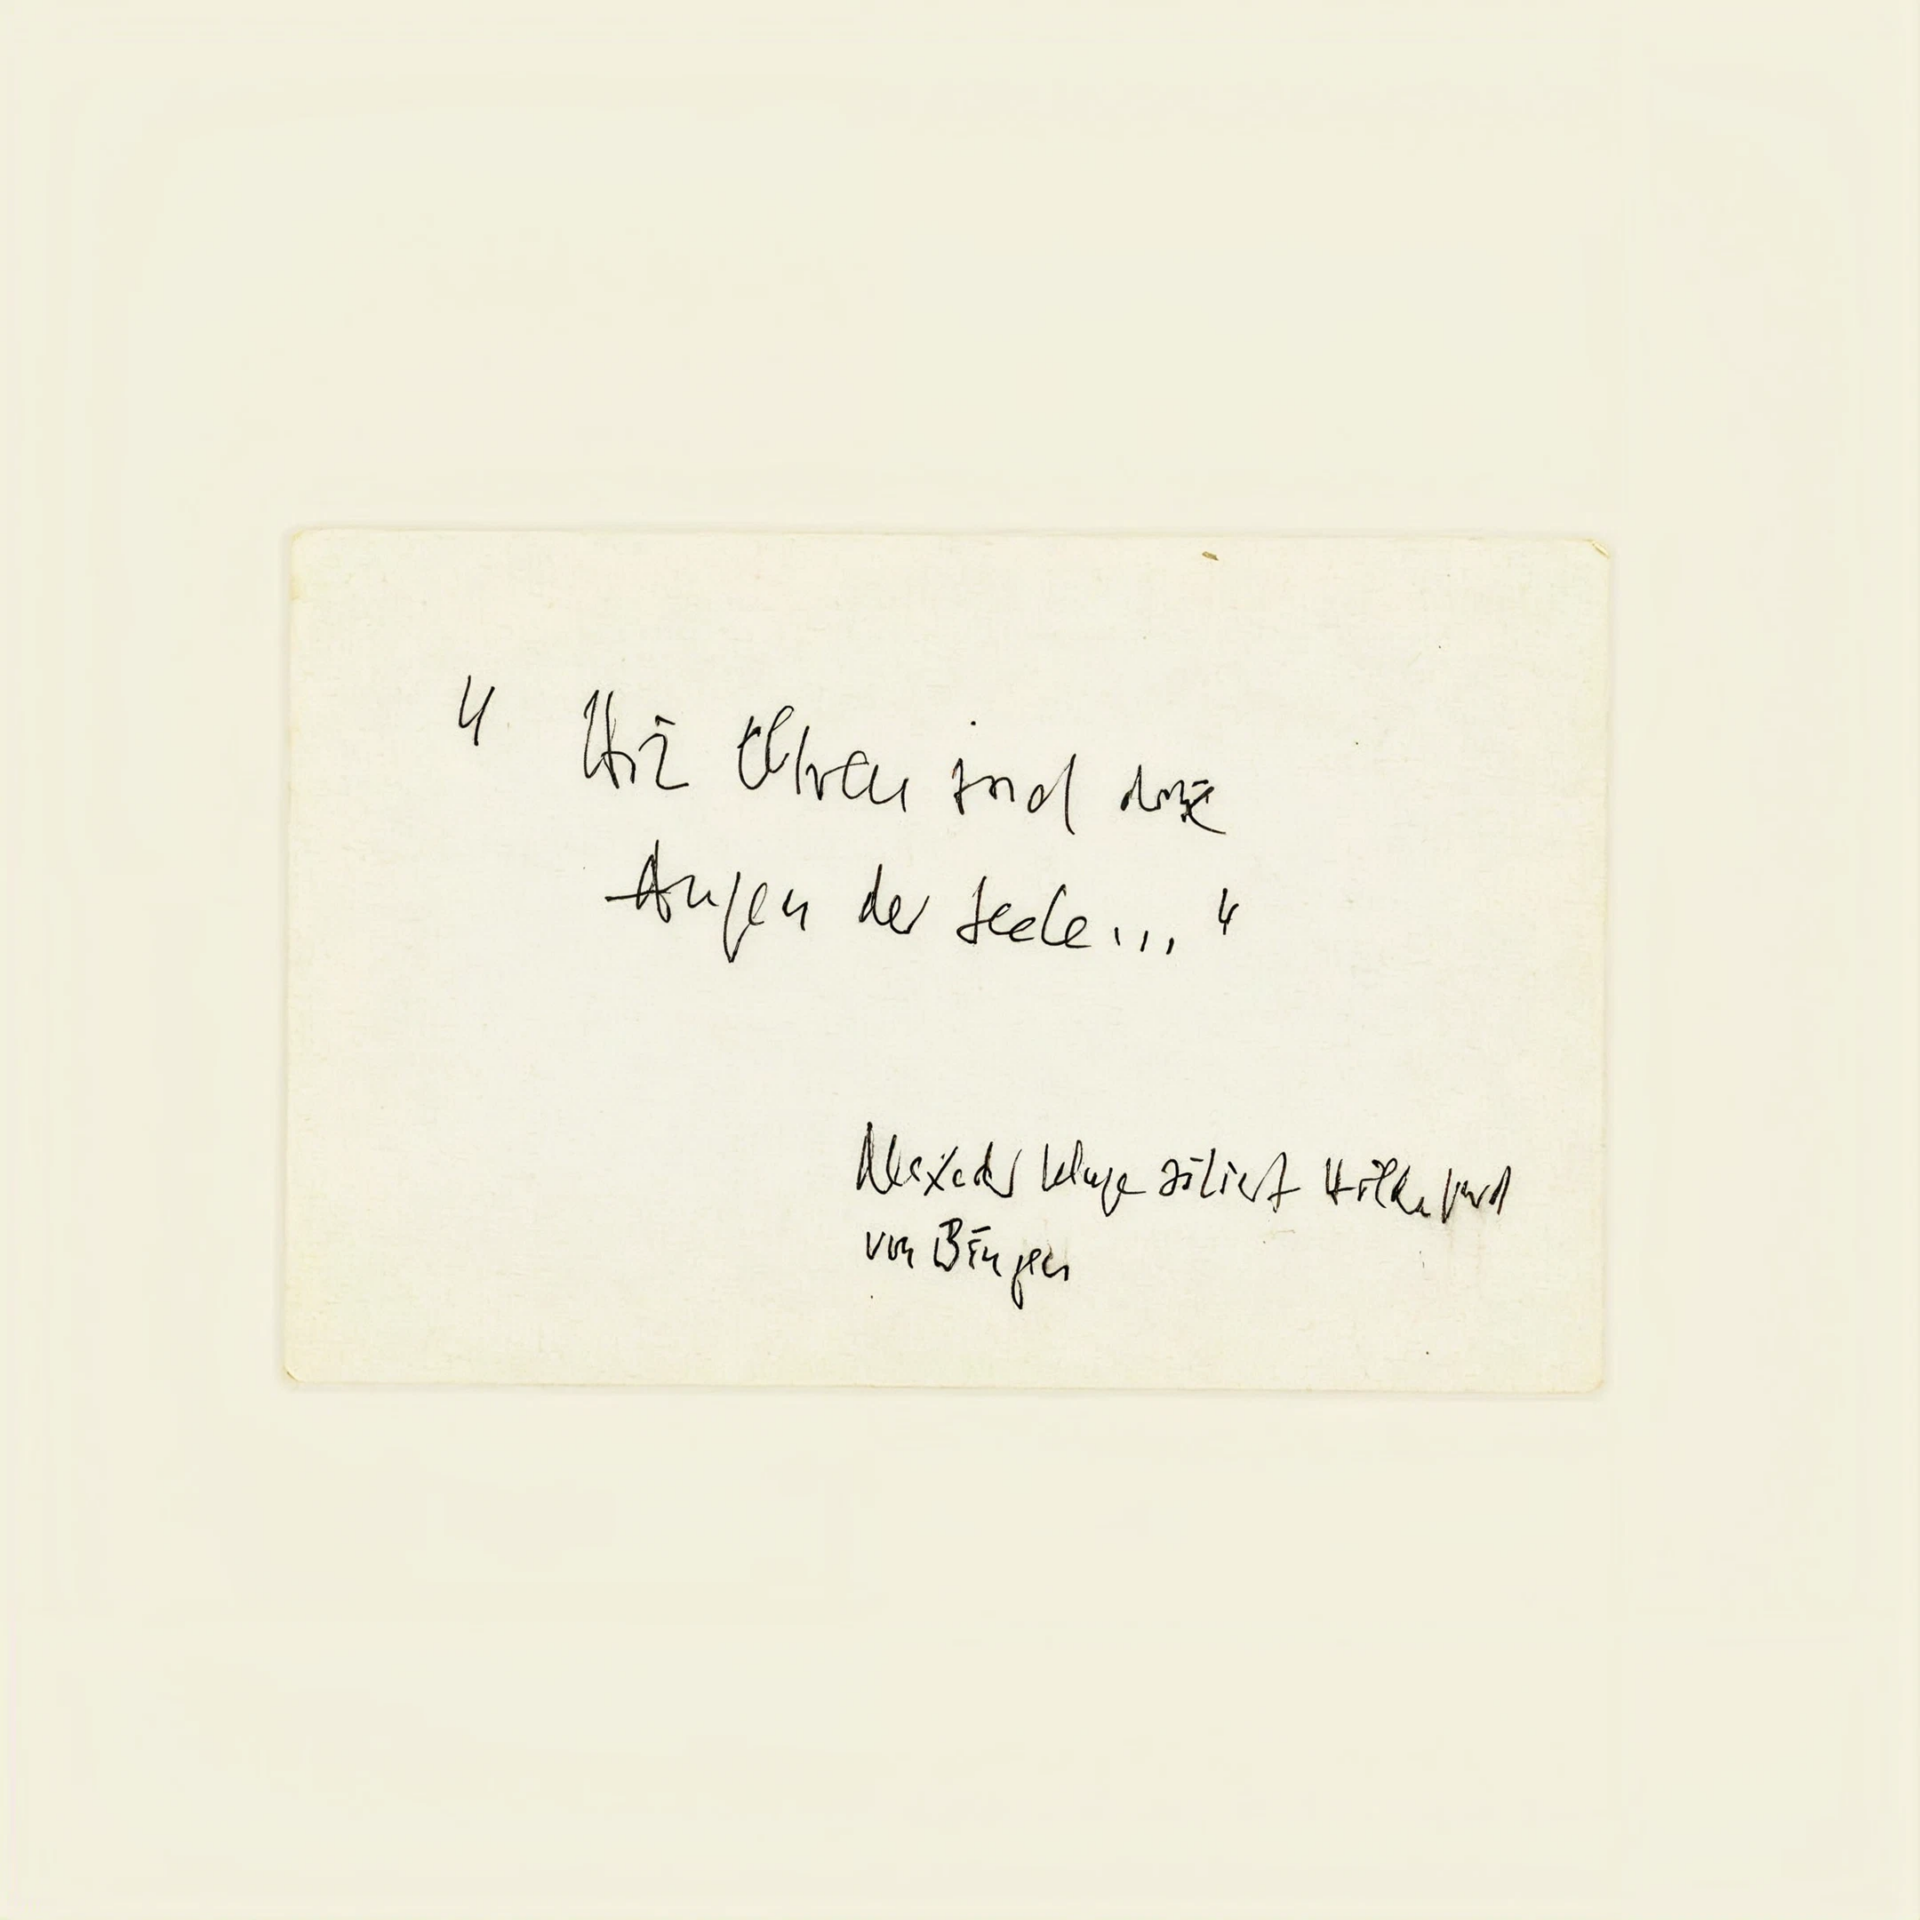 " Die Ohren sind die
Augen der Seele... "
Alexander Kluge zitiert Hildegard
von Bingen